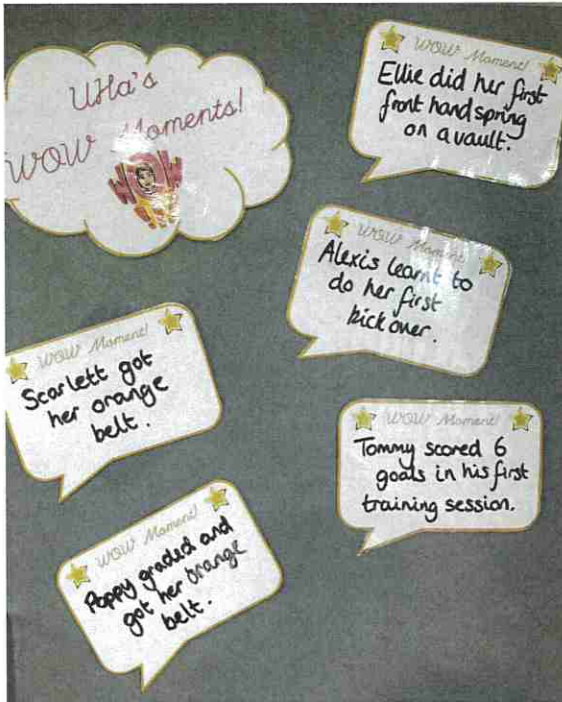 UHa's
WOW Moments!
WOW Moment!
Ellie did her first
front handspring
on a vault.
WOW Moment
Alexis learnt to
do her first
kick over.
WOW Moment!
Scarlett got
her orange
belt.
WOW Moment!
Tommy scored 6
goals in his first
training session.
WOW Moment!
Poppy graded and
got her orange
belt.